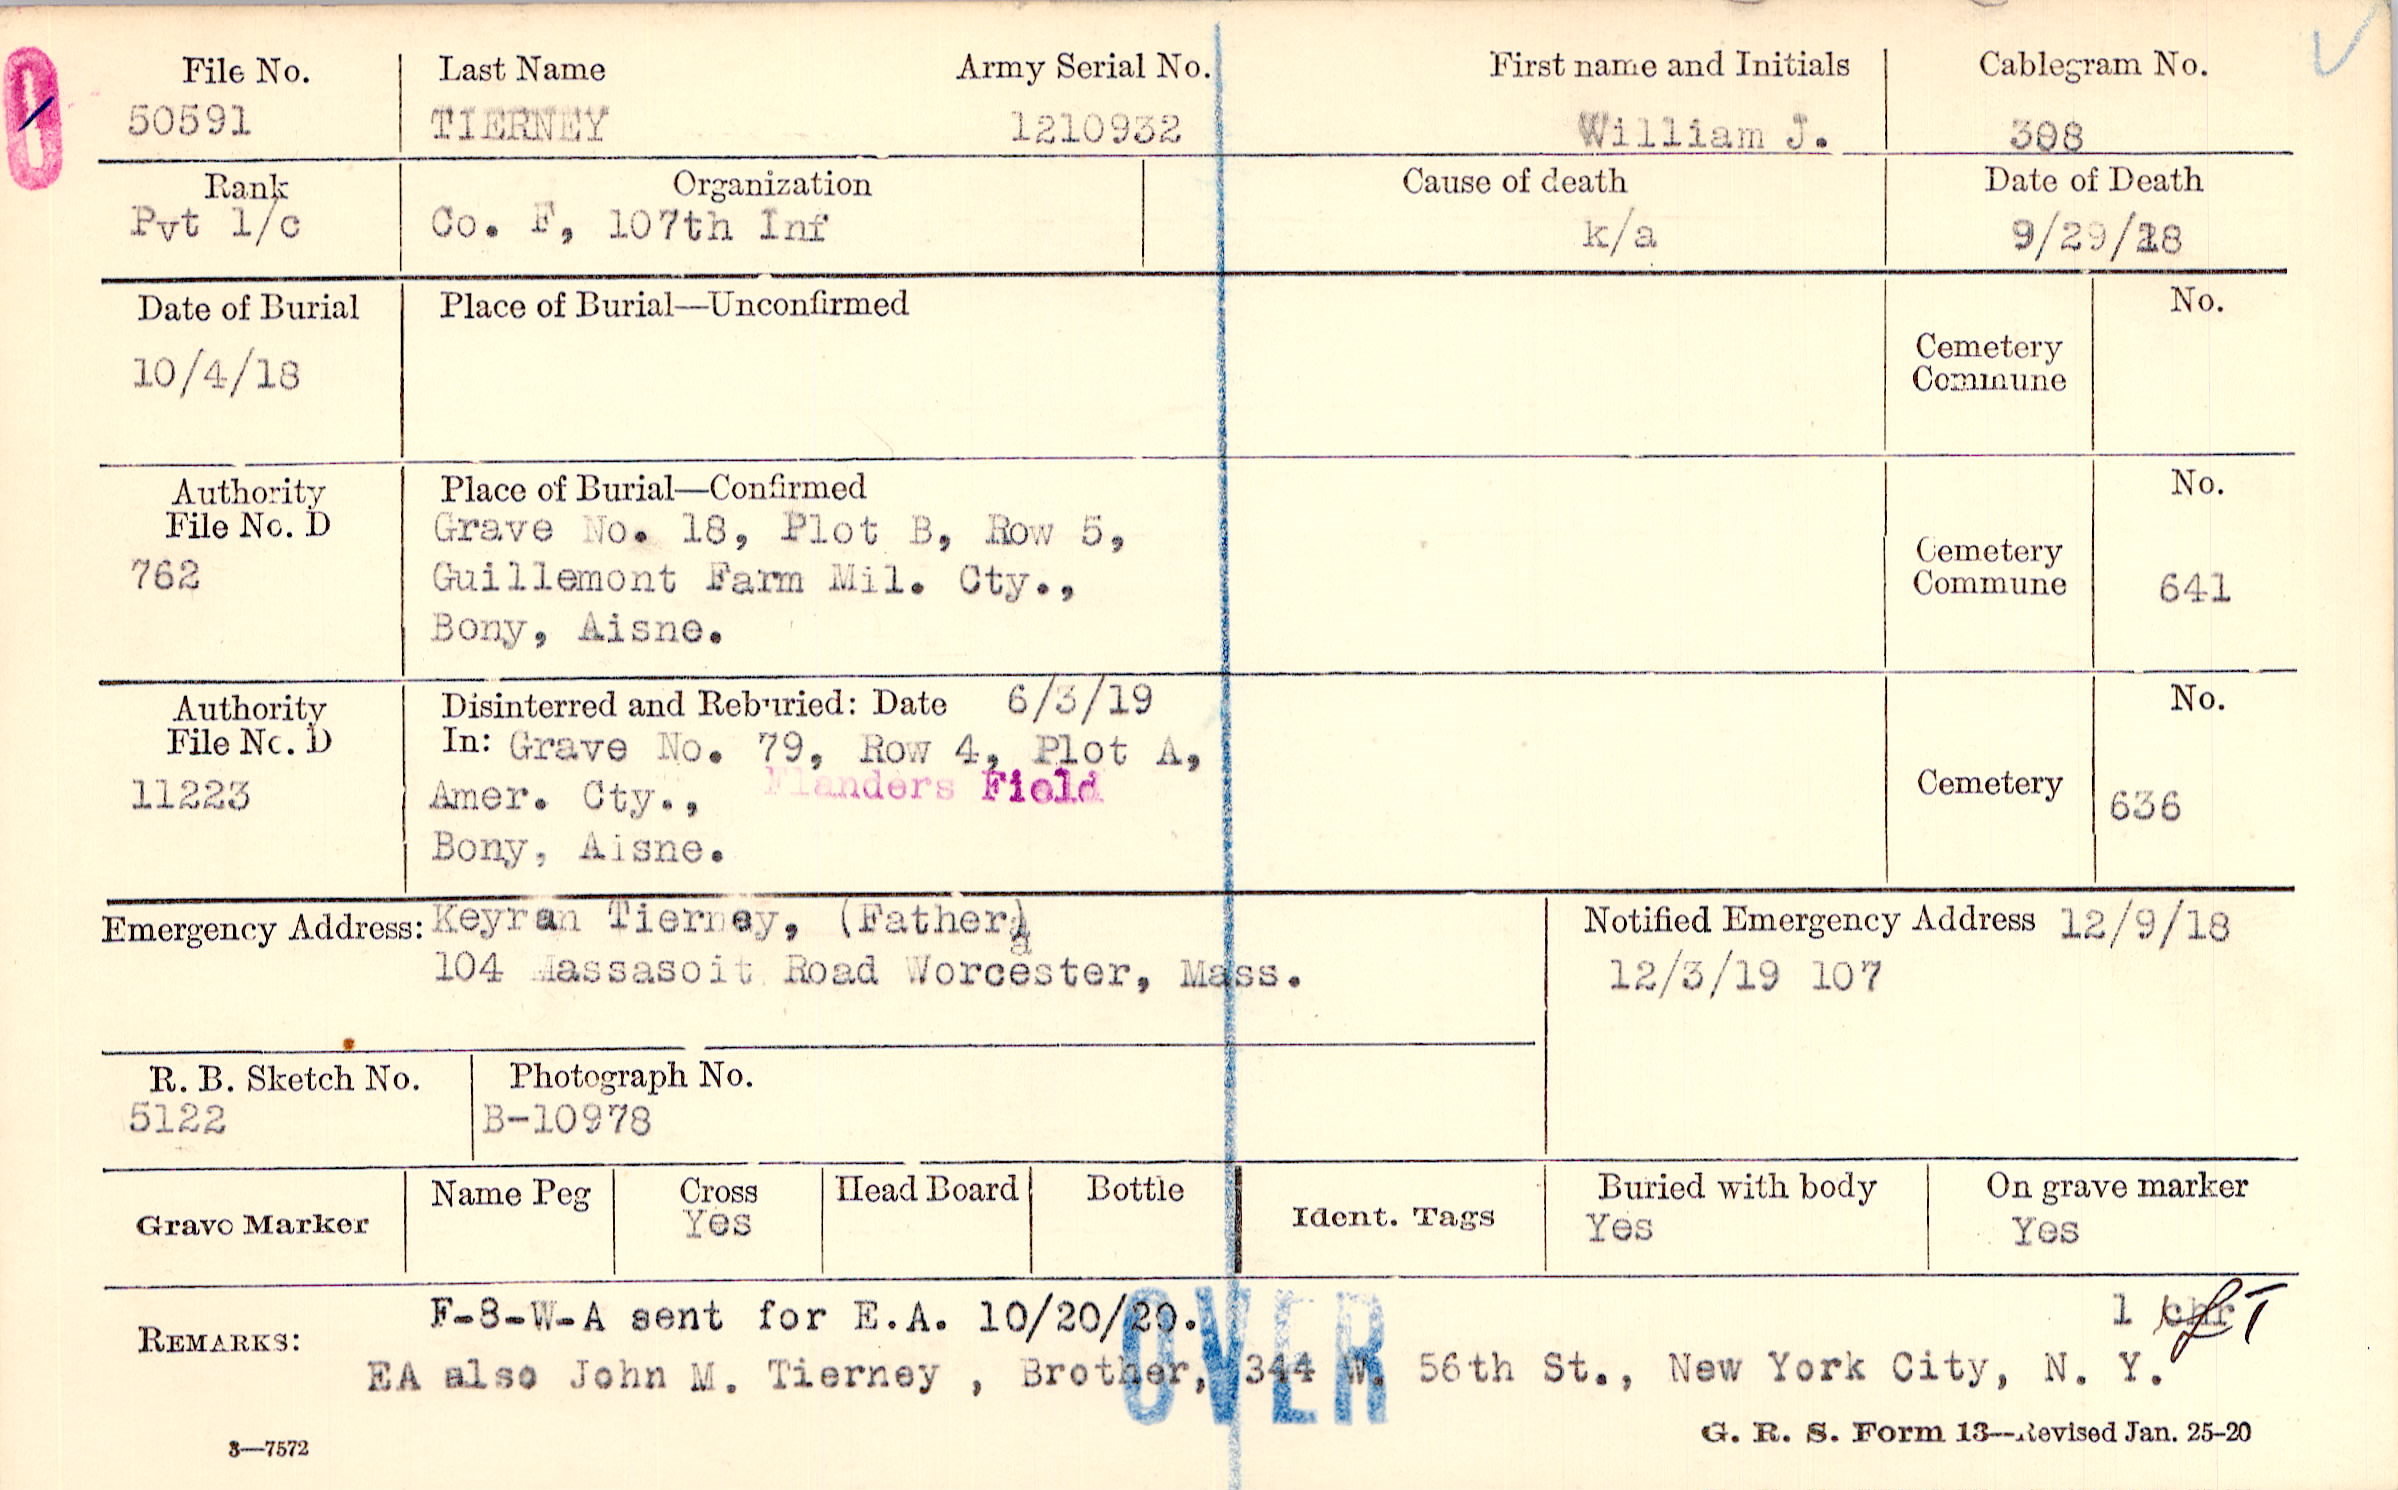 File No. Last Name Army Serial No. First name and Initials Cablegram No.
50591 TIERNEY 1210932 William J. 308
Rank Organization Cause of death Date of Death
Pvt 1/c Co. F, 107th Inf k/a 9/29/18
Date of Burial Place of Burial—Unconfirmed No.
10/4/18 Cemetery
Commune
Authority Place of Burial—Confirmed No.
File No. D Grave No. 18, Plot B, Row 5,
762 Guillemont Farm Mil. Cty., Cemetery
Commune 641
Bony, Aisne.
Authority Disinterred and Reburied: Date 6/3/19 No.
File No. D In: Grave No. 79, Row 4, Plot A,
11223 Amer. Cty., Flanders Field Cemetery 636
Bony, Aisne.
Emergency Address: Keyran Tierney, (Father) Notified Emergency Address 12/9/18
104 Massasoit Road Worcester, Mass. 12/3/19 107
R. B. Sketch No. Photograph No.
5122 B-10978
Grave Marker Name Peg Cross Head Board Bottle Ident. Tags Buried with body On grave marker
Yes Yes Yes
REMARKS: F-8-W-A sent for E.A. 10/20/20. 1 chr
EA also John M. Tierney , Brother, 344 W. 56th St., New York City, N. Y.
OVER
3—7572 G. R. S. Form 13—Revised Jan. 25-20